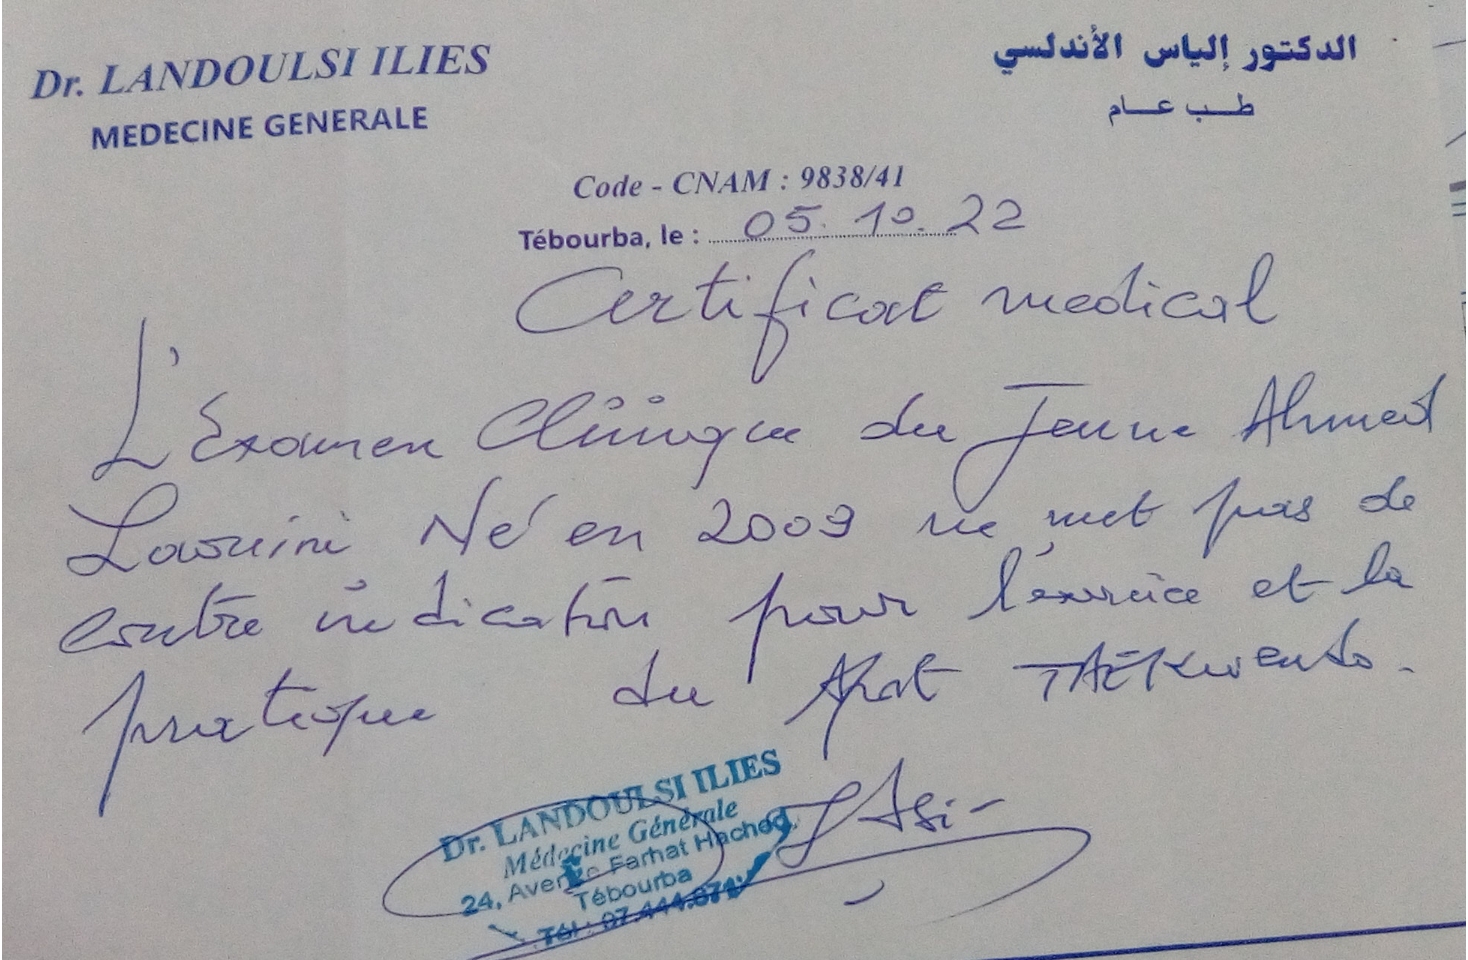 Dr. LANDOULSI ILIES
MEDECINE GENERALE
الدكتور إلياس الأندلسي
طب عام
Code - CNAM : 9838/41
Tébourba, le : 05.10.22
Certificat medical
L'Examen Clinique du Jeune Ahmed
Laouini Né en 2009 ne met pas de
contre indication pour l'exercice et la
pratique du sport TAEKwendo.
Dr. LANDOULSI ILIES
Médecine Générale
24, Avenue Farhat Hached
Tébourba
Tél :